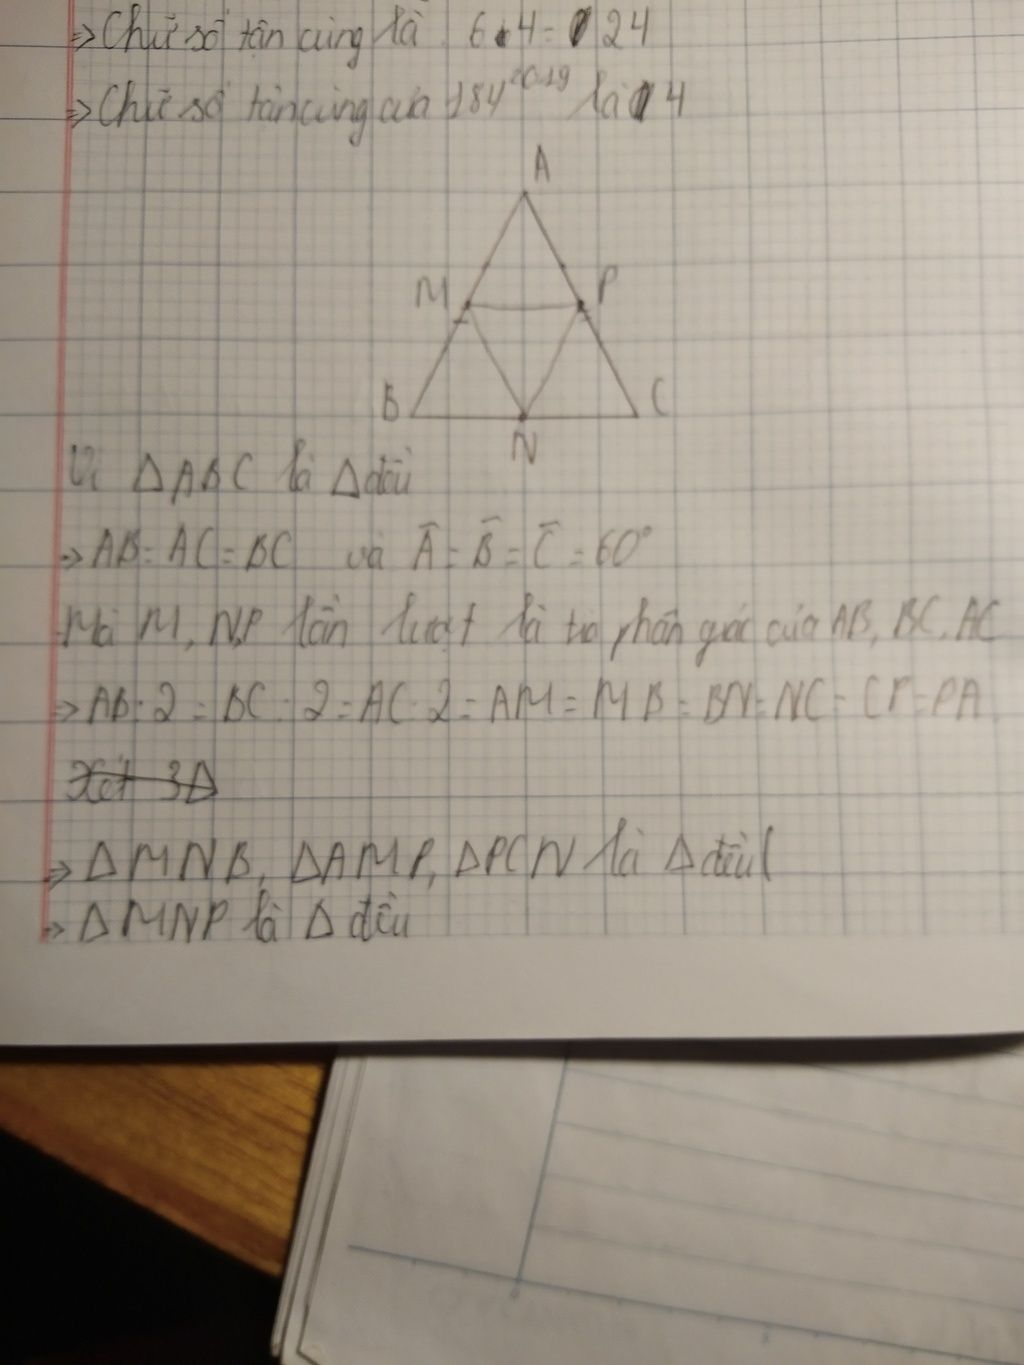 => Chữ số tận cùng là 6.4 = 24
=> Chữ số tận cùng của 184^2019 là 4
A
M
P
B
C
N
Vì ΔABC là Δ đều
=> AB = AC = BC và Â = B̂ = Ĉ = 60°
Mà M, N, P lần lượt là tia phân giác của AB, BC, AC
=> AB : 2 = BC : 2 = AC : 2 = AM = MB = BN = NC = CP = PA
Xét 3Δ
=> ΔMNB, ΔAMP, ΔPCN là Δ đều(
=> ΔMNP là Δ đều